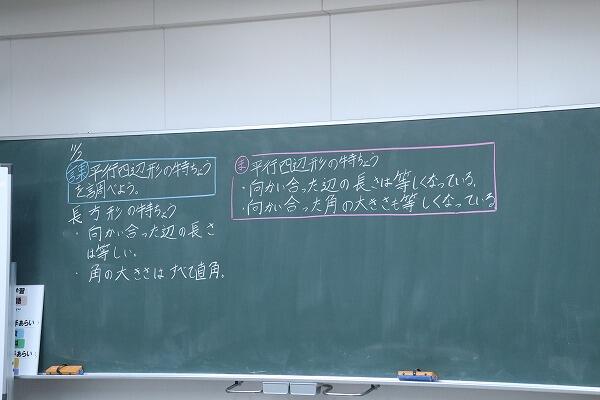 11/2
課 平行四辺形の特ちょう
を調べよう。
長方形の特ちょう
・向かい合った辺の長さ
は等しい。
・角の大きさはすべて直角。
ま 平行四辺形の特ちょう
・向かい合った辺の長さは等しくなっている。
・向かい合った角の大きさも等しくなっている
学習
手あらい
手あらい